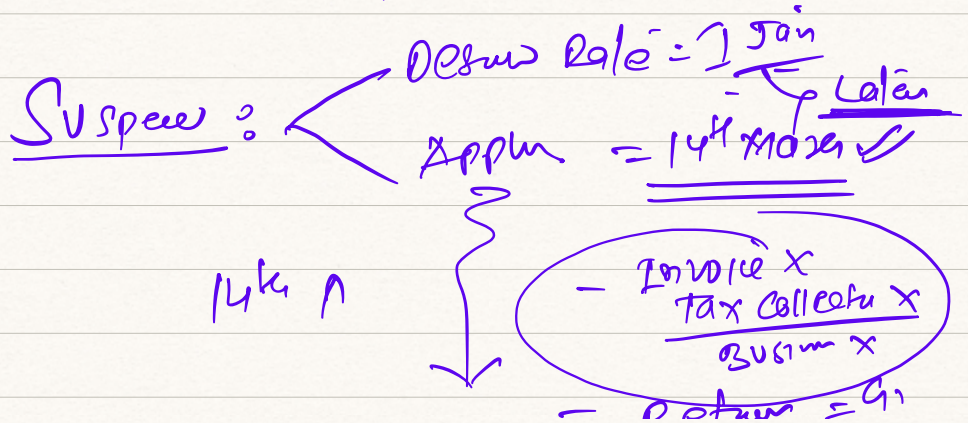 Desired Date = 1 Jan
Later
Suspen :
Appln = 14th March
14th
- Invoice X
Tax Collectn X
Busin X
- Return =